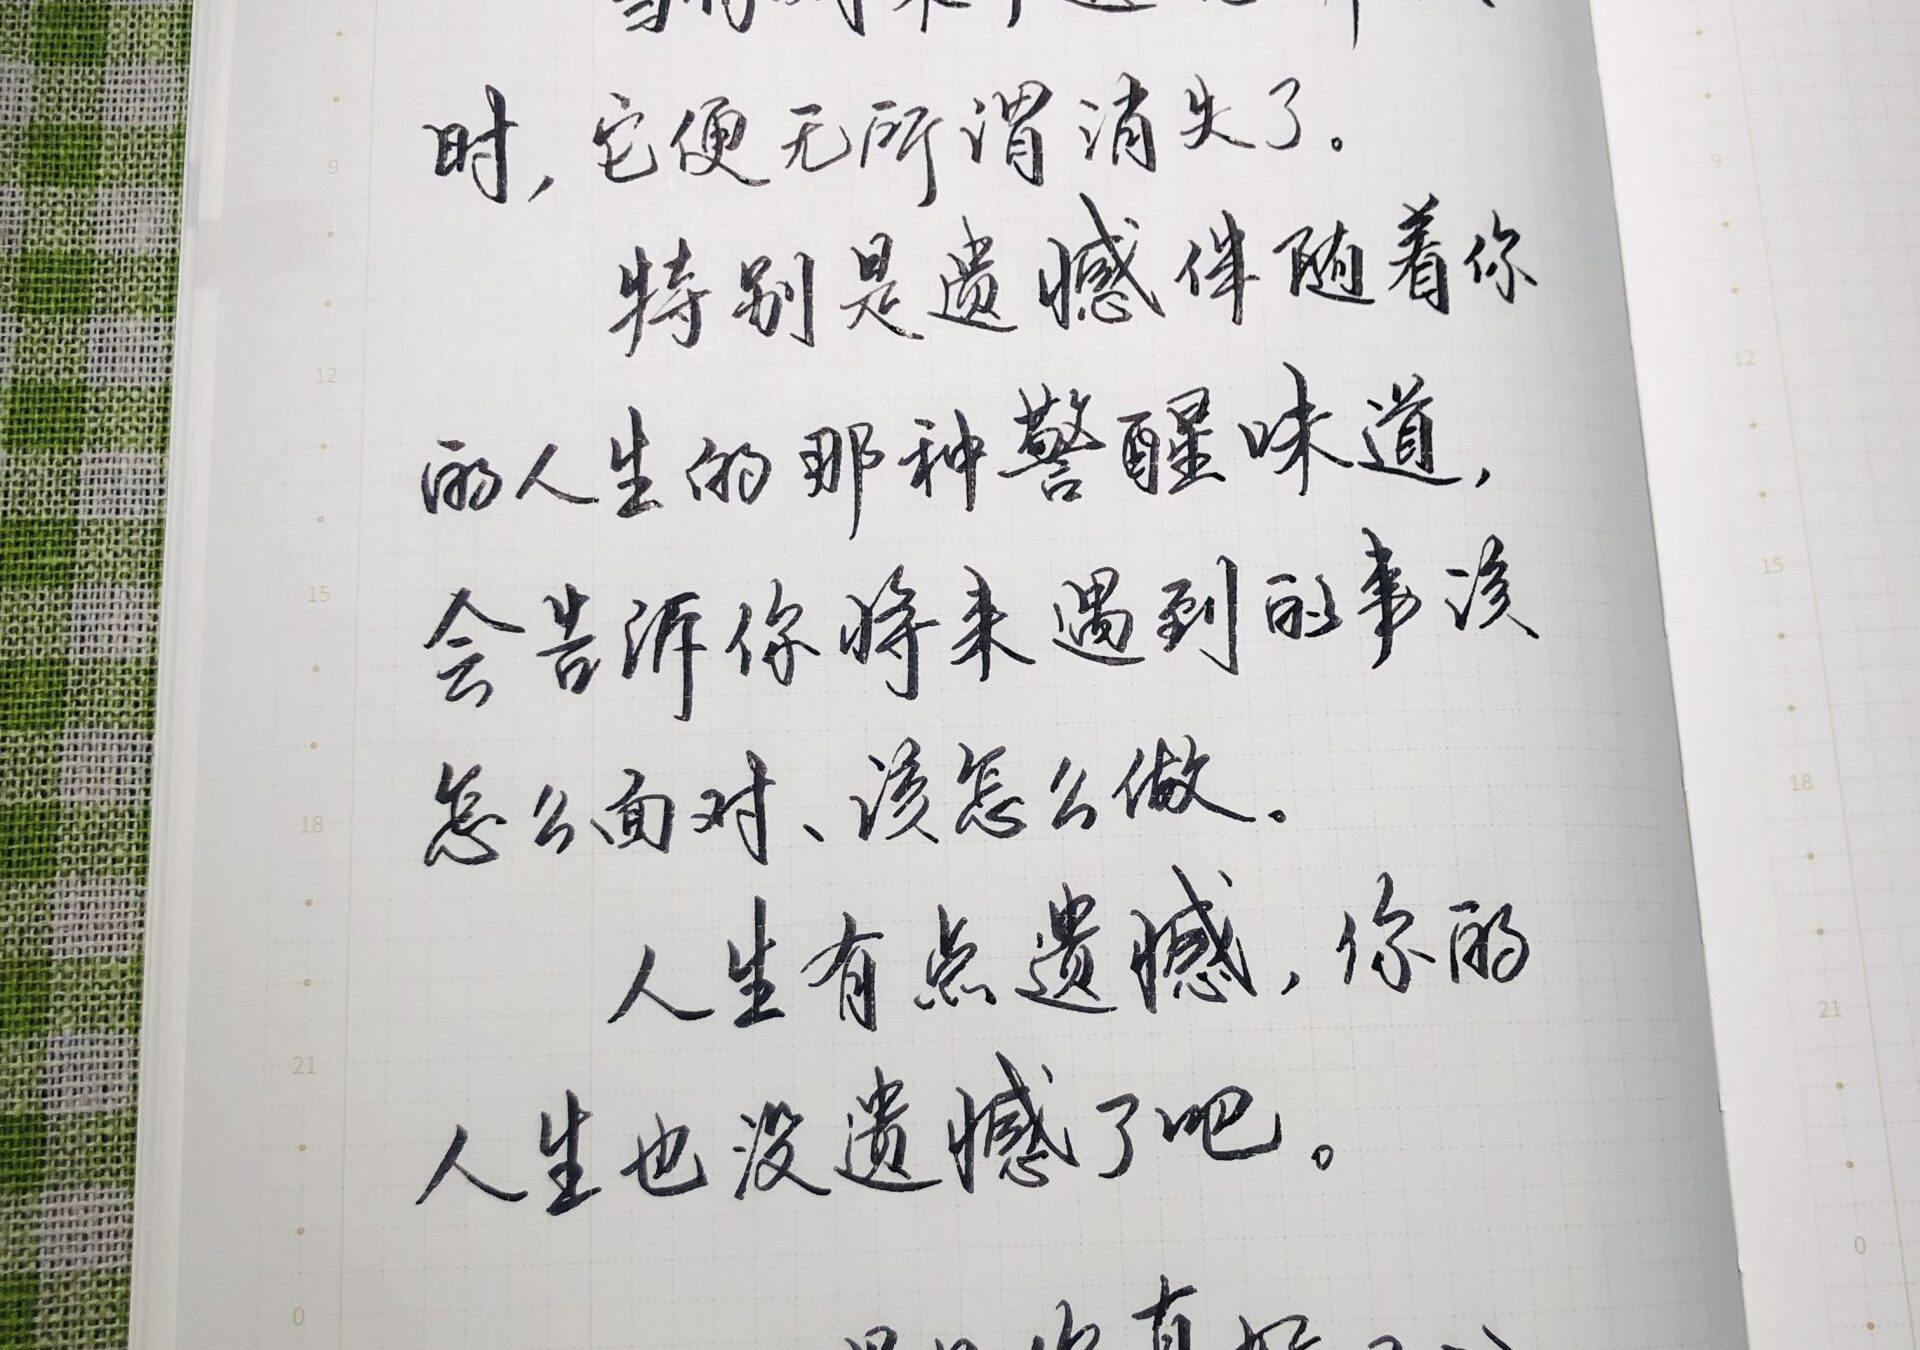 时，它便无所谓消失了。
特别是遗憾伴随着你
的人生的那种警醒味道，
会告诉你将来遇到的事该
怎么面对、该怎么做。
人生有点遗憾，你的
人生也没遗憾了吧。
9
12
15
18
21
0
9
12
15
18
21
0